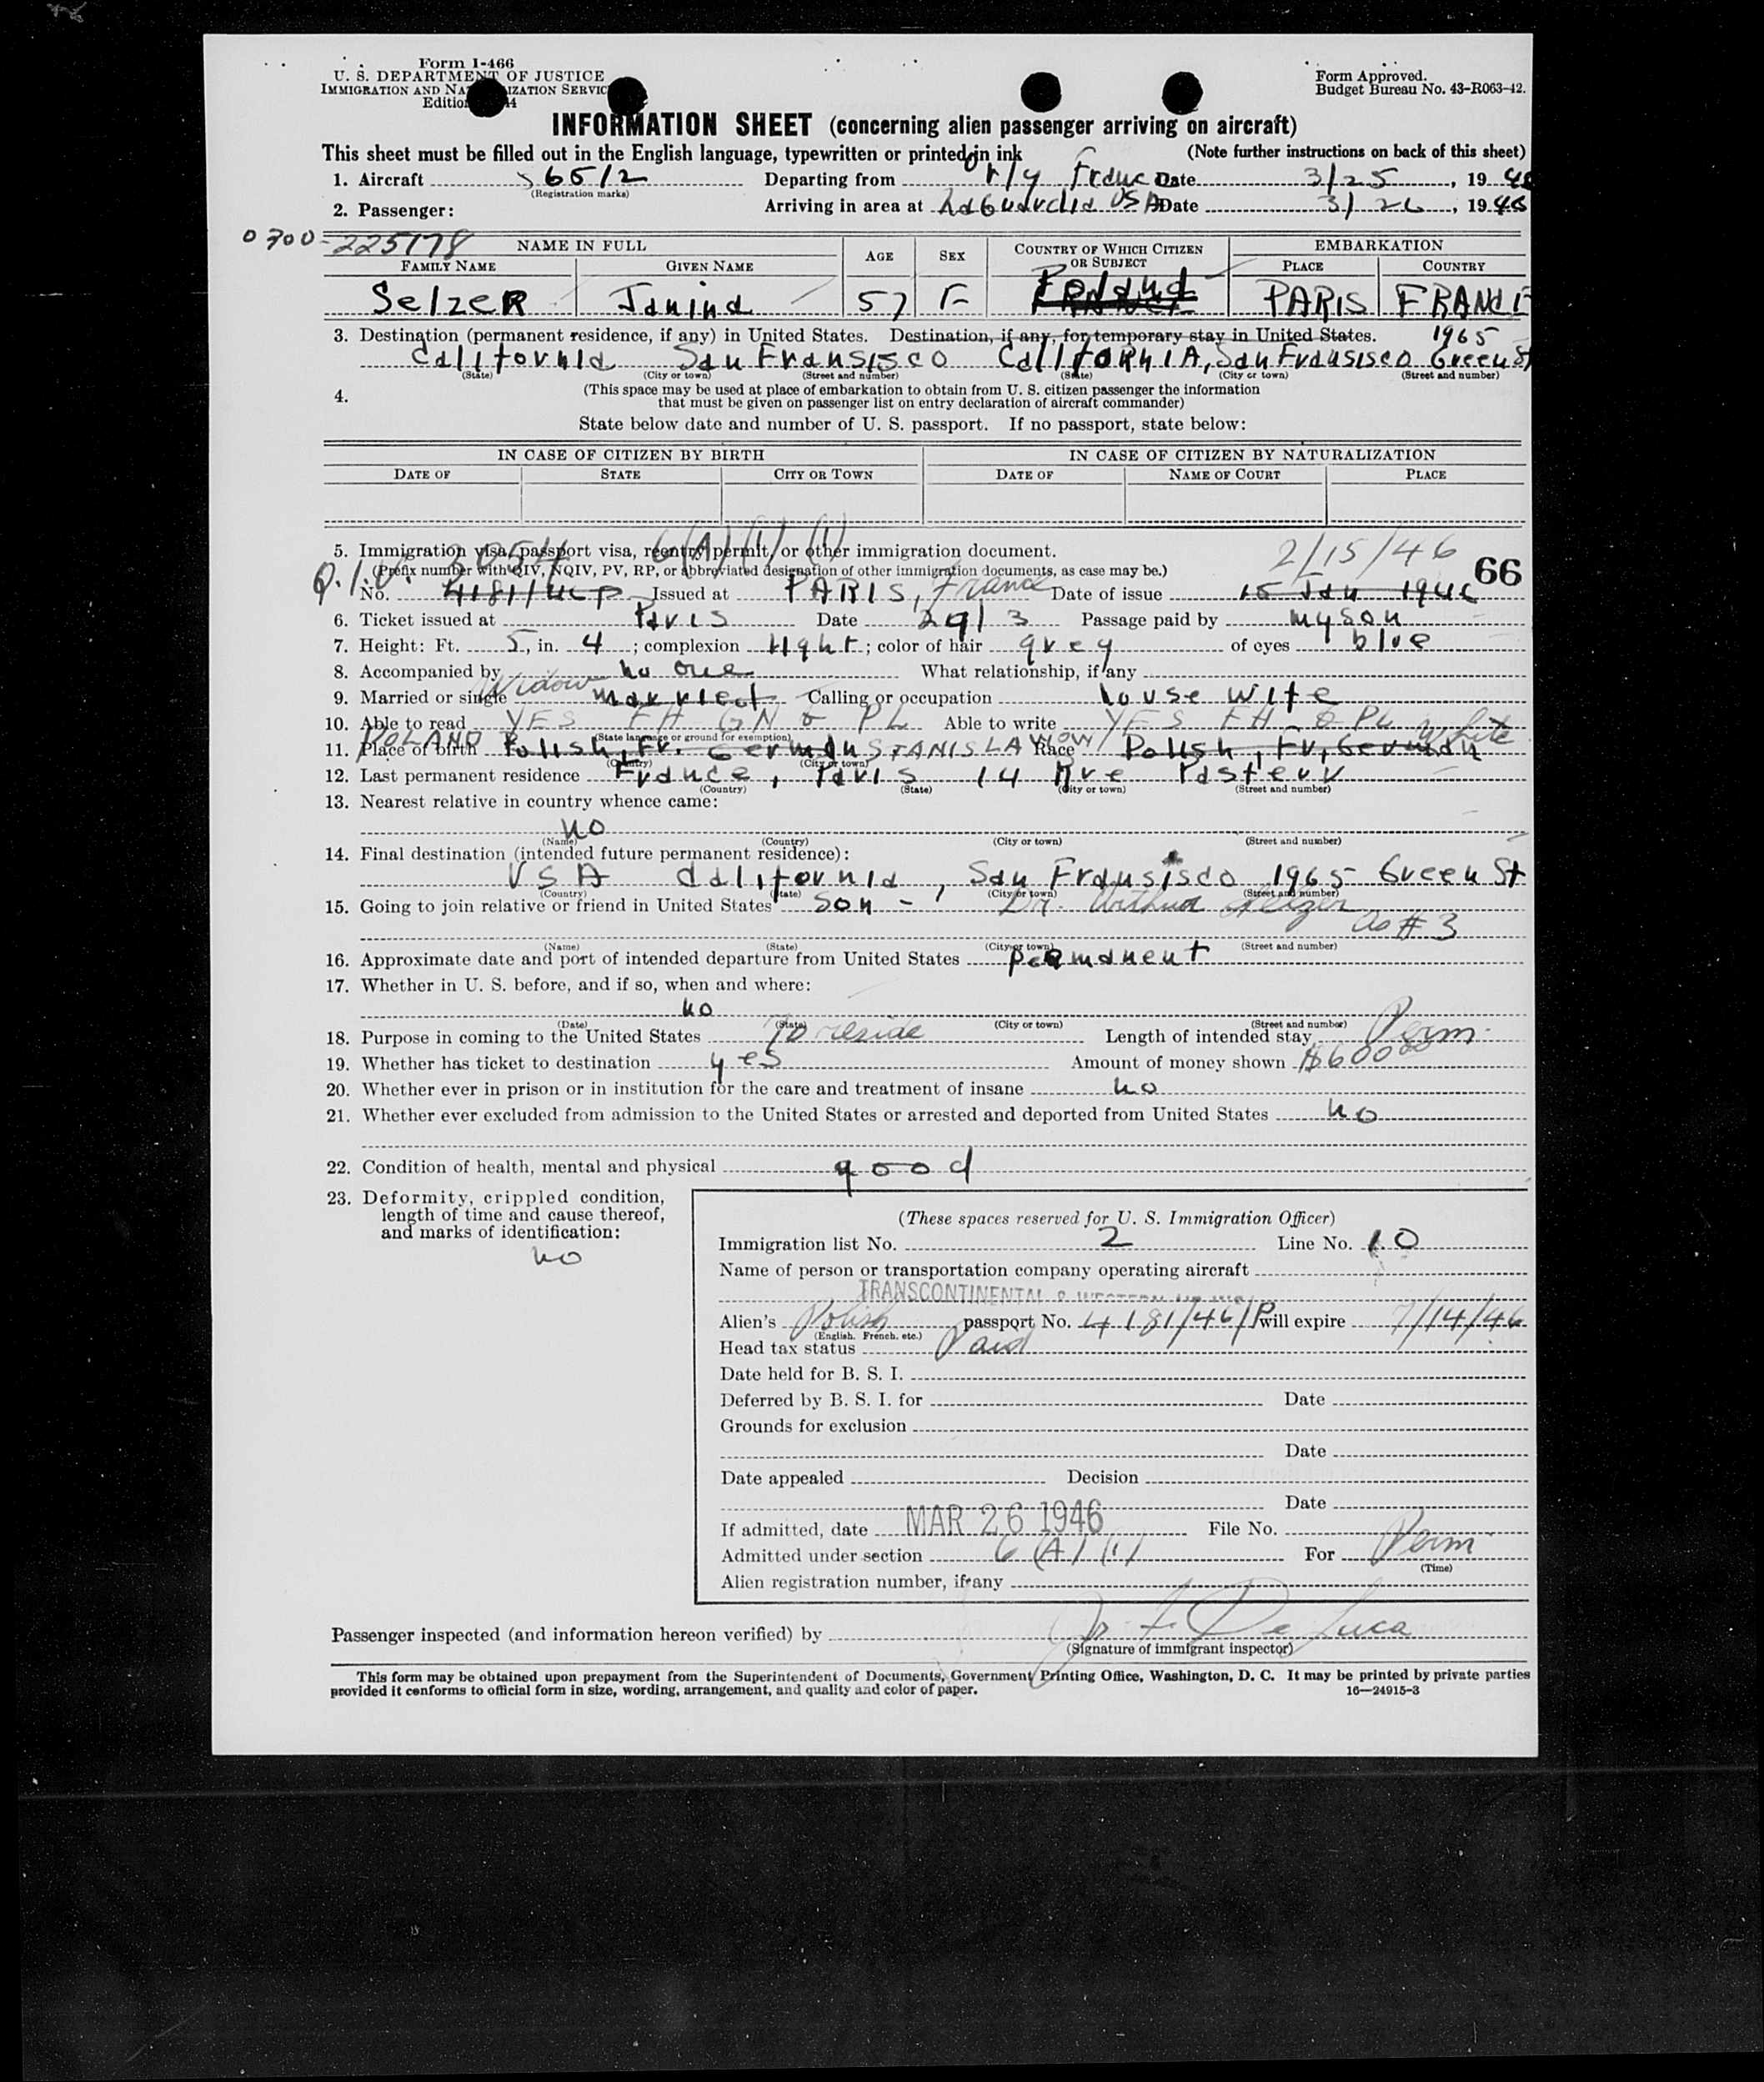 Form I-466
U. S. DEPARTMENT OF JUSTICE
IMMIGRATION AND NATURALIZATION SERVICE
Form Approved.
Budget Bureau No. 43-R063-42.
INFORMATION SHEET (concerning alien passenger arriving on aircraft)
This sheet must be filled out in the English language, typewritten or printed in ink (Note further instructions on back of this sheet)
1. Aircraft 6512 Departing from Orly France Date 3/25, 1946
(Registration marks)
2. Passenger: Arriving in area at LaGuardia USA Date 3/26, 1946
0700-225178 NAME IN FULL AGE SEX COUNTRY OF WHICH CITIZEN OR SUBJECT EMBARKATION
FAMILY NAME GIVEN NAME PLACE COUNTRY
Selzer Janina 57 F Poland PARIS FRANCE
3. Destination (permanent residence, if any) in United States. Destination, if any, for temporary stay in United States. 1965
California San Fransisco CalifoRniA, San Fransisco Green St
(State) (City or town) (Street and number) (State) (City or town) (Street and number)
4. (This space may be used at place of embarkation to obtain from U. S. citizen passenger the information
that must be given on passenger list on entry declaration of aircraft commander)
State below date and number of U. S. passport. If no passport, state below:
IN CASE OF CITIZEN BY BIRTH IN CASE OF CITIZEN BY NATURALIZATION
DATE OF STATE CITY OR TOWN DATE OF NAME OF COURT PLACE
5. Immigration visa, passport visa, reentry permit, or other immigration document. 6(A)(1)(1) 2/15/46
(Prefix number with QIV, NQIV, PV, RP, or abbreviated designation of other immigration documents, as case may be.) 66
Q.I.V. 3054
No. 4181/46P Issued at PARIS, France Date of issue 15 Jan 1946
6. Ticket issued at Paris Date 29/3 Passage paid by my son
7. Height: Ft. 5, in. 4; complexion light; color of hair grey of eyes blue
8. Accompanied by no one What relationship, if any
9. Married or single Widow married Calling or occupation house wife
10. Able to read YES FH GN & PL Able to write YES FH & PL White
(State language or ground for exemption)
11. Place of birth POLAND Polish, Fr. German STANISLAWOW Race Polish, Fr, German
(Country) (City or town)
12. Last permanent residence France, Paris 14 Ave Pasteur
(Country) (State) (City or town) (Street and number)
13. Nearest relative in country whence came:
no
(Name) (Country) (City or town) (Street and number)
14. Final destination (intended future permanent residence):
USA California, San Fransisco 1965 Green St
(Country) (State) (City or town) (Street and number)
15. Going to join relative or friend in United States son - Dr. Arthur Selzer
as # 3
(Name) (State) (City or town) (Street and number)
16. Approximate date and port of intended departure from United States permanent
17. Whether in U. S. before, and if so, when and where:
no
(Date) (State) (City or town) (Street and number)
18. Purpose in coming to the United States To reside Length of intended stay Perm.
19. Whether has ticket to destination yes Amount of money shown $600.00
20. Whether ever in prison or in institution for the care and treatment of insane no
21. Whether ever excluded from admission to the United States or arrested and deported from United States no
22. Condition of health, mental and physical good
23. Deformity, crippled condition,
length of time and cause thereof,
and marks of identification:
no
(These spaces reserved for U. S. Immigration Officer)
Immigration list No. 2 Line No. 10
Name of person or transportation company operating aircraft
TRANSCONTINENTAL & WESTERN AIR
Alien's Polish passport No. 4181/46/P will expire 7/14/46
(English, French, etc.)
Head tax status Paid
Date held for B. S. I.
Deferred by B. S. I. for Date
Grounds for exclusion
Date
Date appealed Decision
Date
If admitted, date MAR 26 1946 File No.
Admitted under section 6 (A) (1) For Perm
(Time)
Alien registration number, if any
Passenger inspected (and information hereon verified) by De Luca
(Signature of immigrant inspector)
This form may be obtained upon prepayment from the Superintendent of Documents, Government Printing Office, Washington, D. C. It may be printed by private parties
provided it conforms to official form in size, wording, arrangement, and quality and color of paper. 16—24915-3